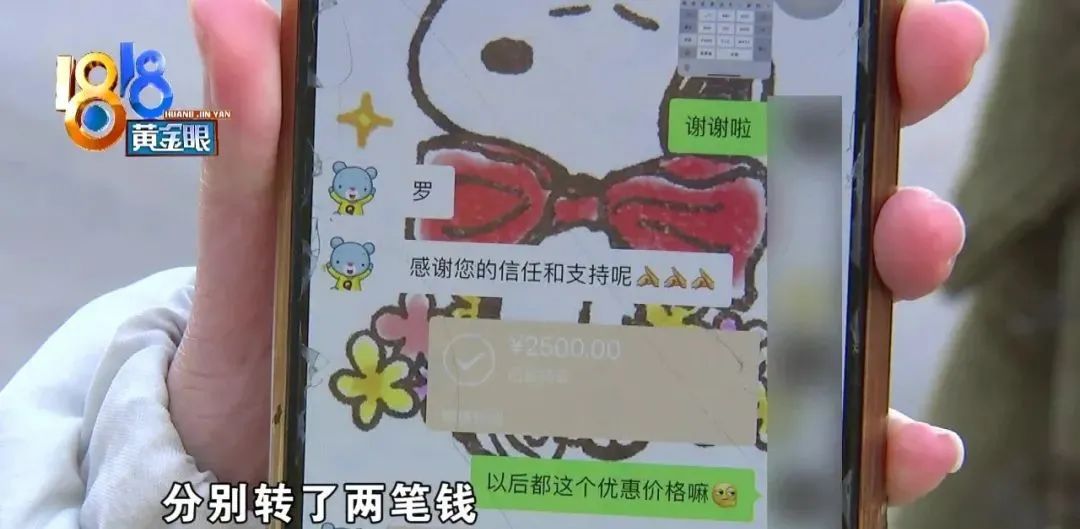 1818
HUANG JIN YAN
黄金眼
谢谢啦
罗
感谢您的信任和支持呢
¥2500.00
以后都这个优惠价格嘛
分别转了两笔钱